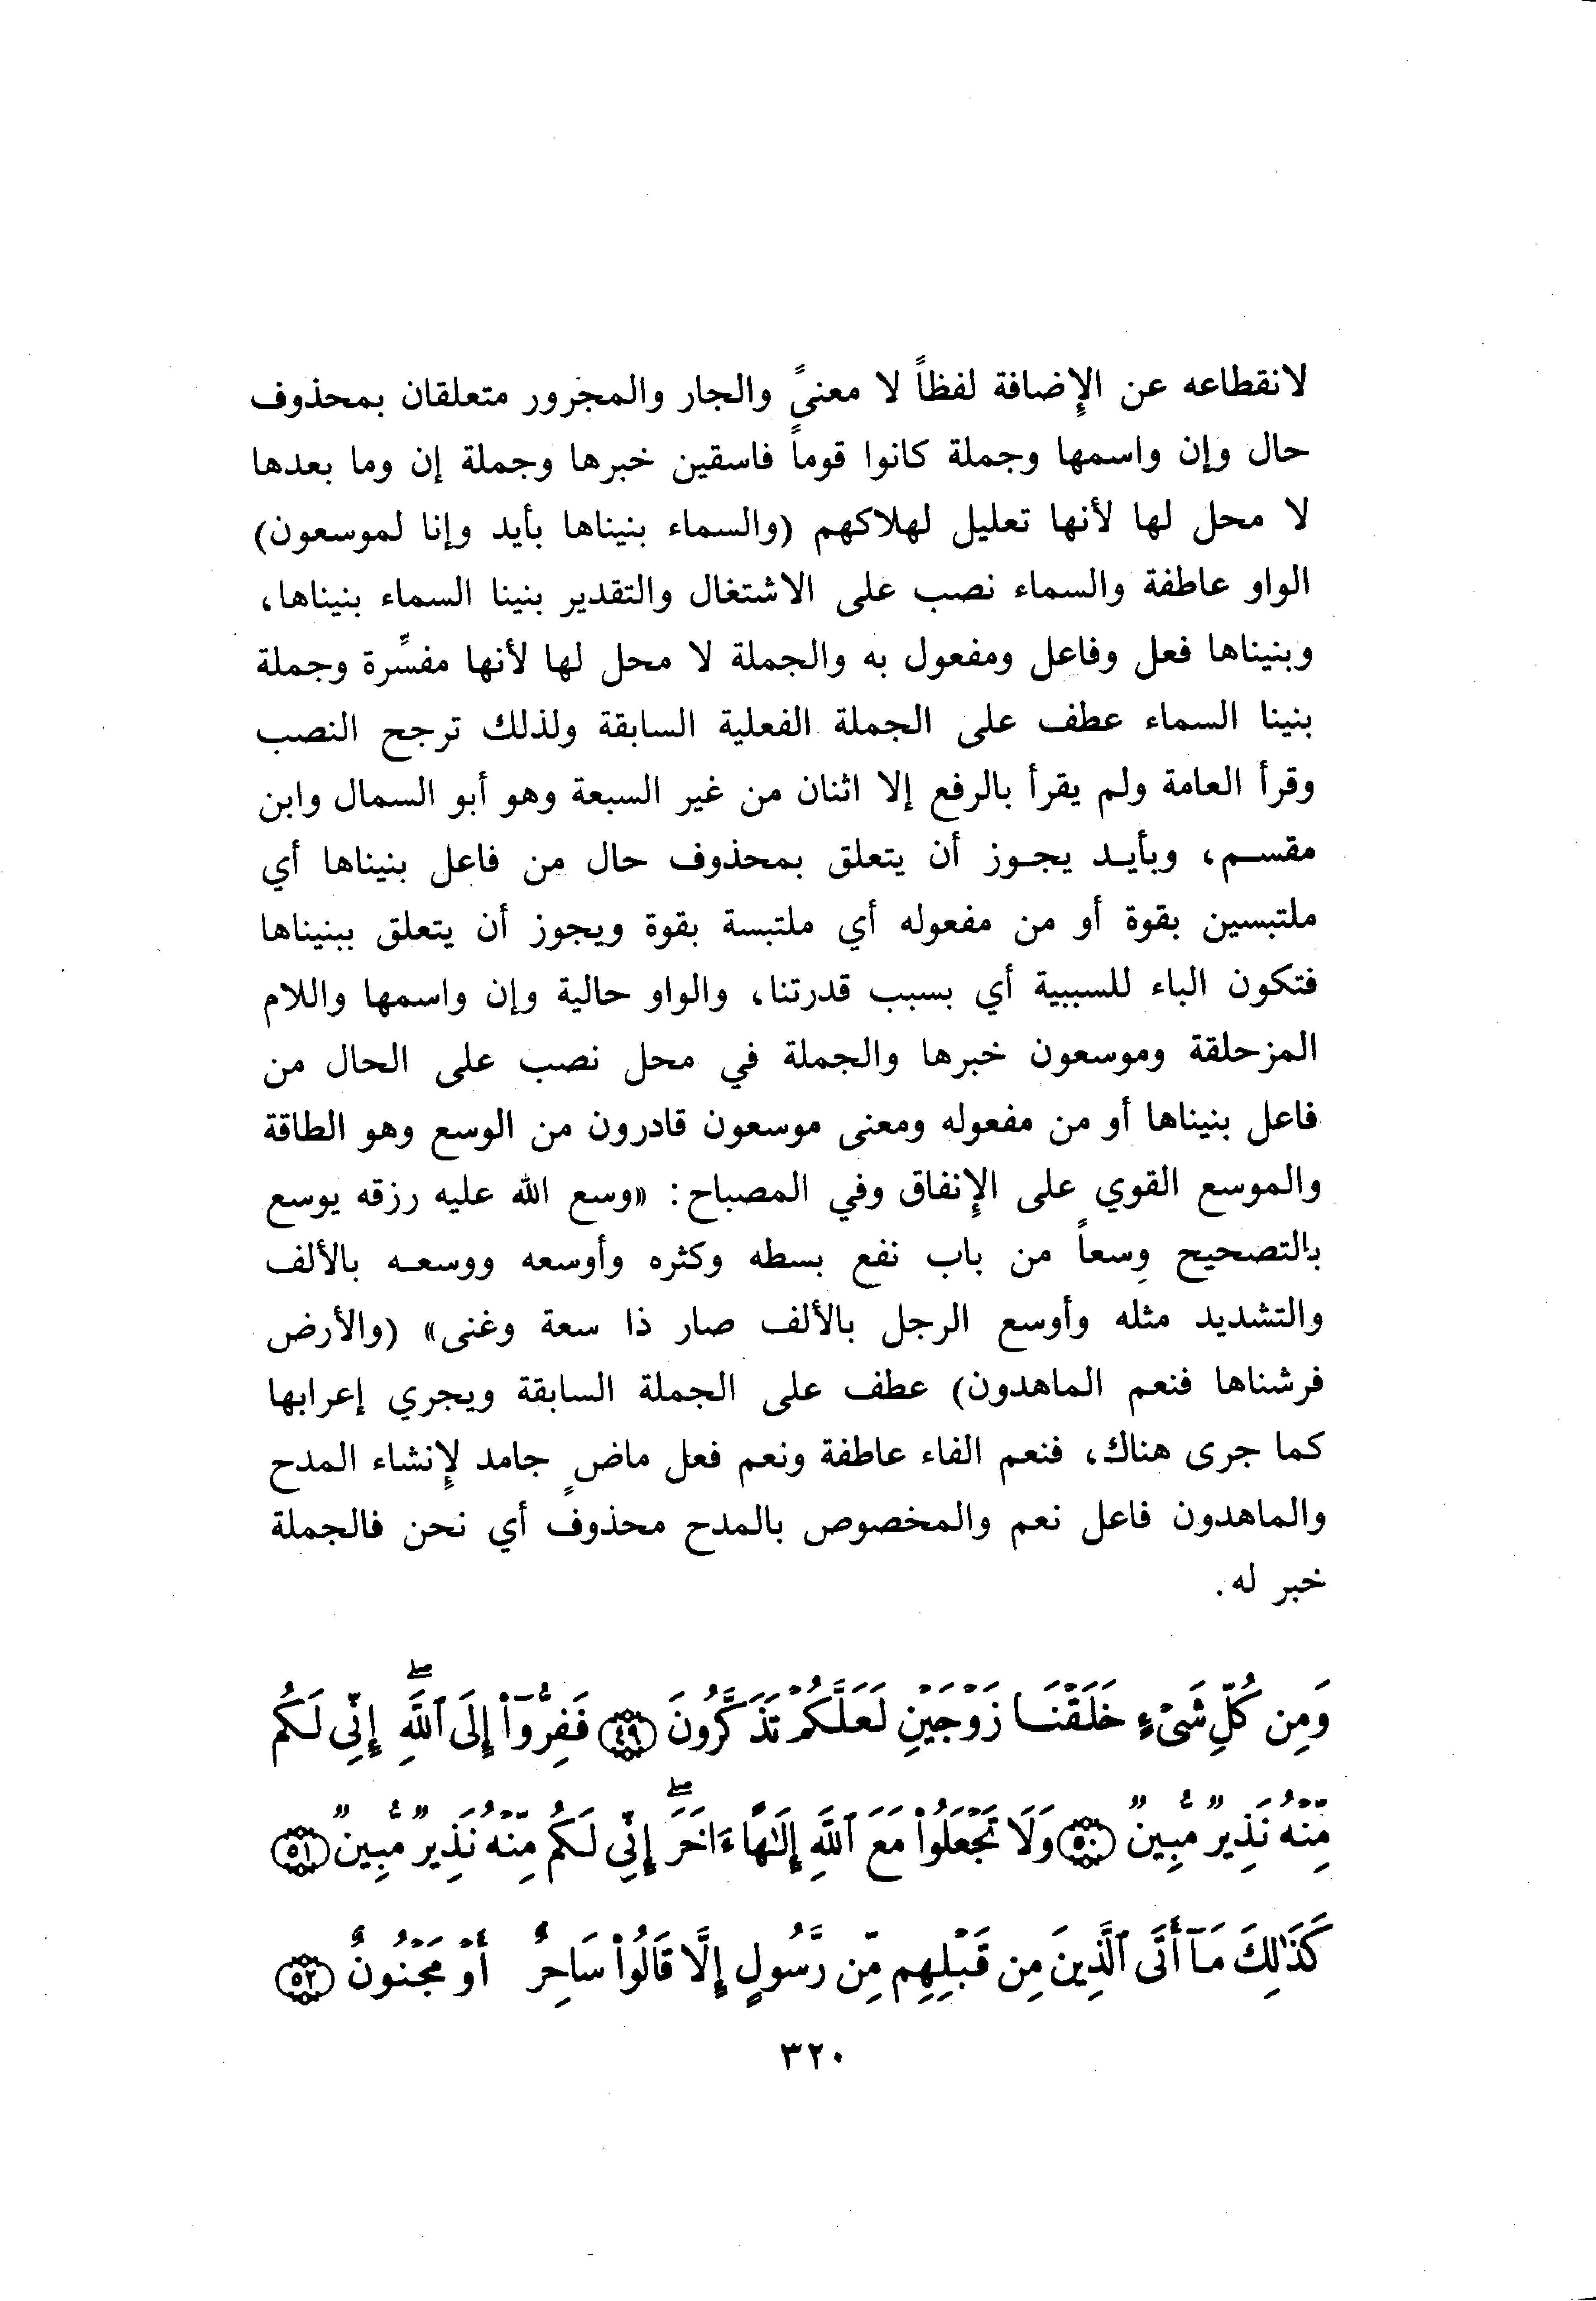 لانقطاعه عن الإضافة لفظاً لا معنىً والجار والمجرور متعلقان بمحذوف
حال وإن واسمها وجملة كانوا قوماً فاسقين خبرها وجملة إن وما بعدها
لا محل لها لأنها تعليل لهلاكهم (والسماء بنيناها بأيد وإنا لموسعون)
الواو عاطفة والسماء نصب على الاشتغال والتقدير بنينا السماء بنيناها،
وبنيناها فعل وفاعل ومفعول به والجملة لا محل لها لأنها مفسِّرة وجملة
بنينا السماء عطف على الجملة الفعلية السابقة ولذلك ترجح النصب
وقرأ العامة ولم يقرأ بالرفع إلا اثنان من غير السبعة وهو أبو السمال وابن
مقسم، وبأيد يجوز أن يتعلق بمحذوف حال من فاعل بنيناها أي
ملتبسين بقوة أو من مفعوله أي ملتبسة بقوة ويجوز أن يتعلق ببنيناها
فتكون الباء للسببية أي بسبب قدرتنا، والواو حالية وإن واسمها واللام
المزحلقة وموسعون خبرها والجملة في محل نصب على الحال من
فاعل بنيناها أو من مفعوله ومعنى موسعون قادرون من الوسع وهو الطاقة
والموسع القوي على الإنفاق وفي المصباح: «وسع الله عليه رزقه يوسع
بالتصحيح وسعاً من باب نفع بسطه وكثره وأوسعه ووسعه بالألف
والتشديد مثله وأوسع الرجل بالألف صار ذا سعة وغنى» (والأرض
فرشناها فنعم الماهدون) عطف على الجملة السابقة ويجري إعرابها
كما جرى هناك، فنعم الفاء عاطفة ونعم فعل ماضٍ جامد لإنشاء المدح
والماهدون فاعل نعم والمخصوص بالمدح محذوف أي نحن فالجملة
خبر له.
وَمِن كُلِّ شَىْءٍ خَلَقْنَا زَوْجَيْنِ لَعَلَّكُمْ تَذَكَّرُونَ ﴿٤٩﴾ فَفِرُّوٓا۟ إِلَى ٱللَّهِ ۖ إِنِّى لَكُم
مِّنْهُ نَذِيرٌ مُّبِينٌ ﴿٥٠﴾ وَلَا تَجْعَلُوا۟ مَعَ ٱللَّهِ إِلَٰهًا ءَاخَرَ ۖ إِنِّى لَكُم مِّنْهُ نَذِيرٌ مُّبِينٌ ﴿٥١﴾
كَذَٰلِكَ مَآ أَتَى ٱلَّذِينَ مِن قَبْلِهِم مِّن رَّسُولٍ إِلَّا قَالُوا۟ سَاحِرٌ أَوْ مَجْنُونٌ ﴿٥٢﴾
٣٢٠